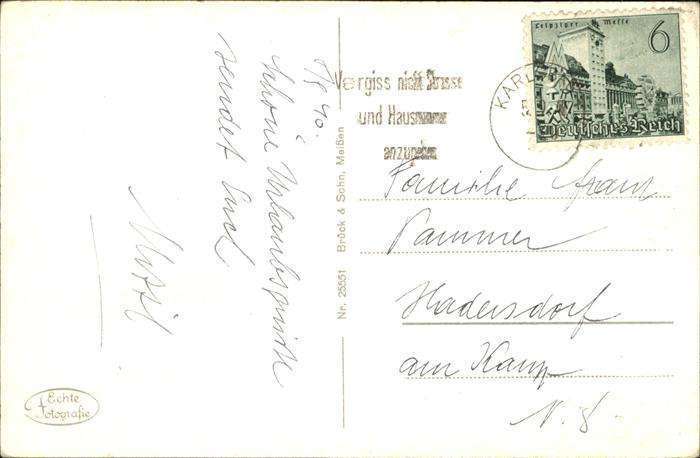 5/5 40.
schöne Urlaubsgrüße
sendet Euch
Echte
Fotografie
Nr. 25551 Brück & Sohn, Meißen
Vergiss nicht Strasse
und Hausnummer
anzugeben
KARL
Leipziger Messe
6
Deutsches Reich
Familie Franz
Pammer
Hadersdorf
am Kamp
N. D.